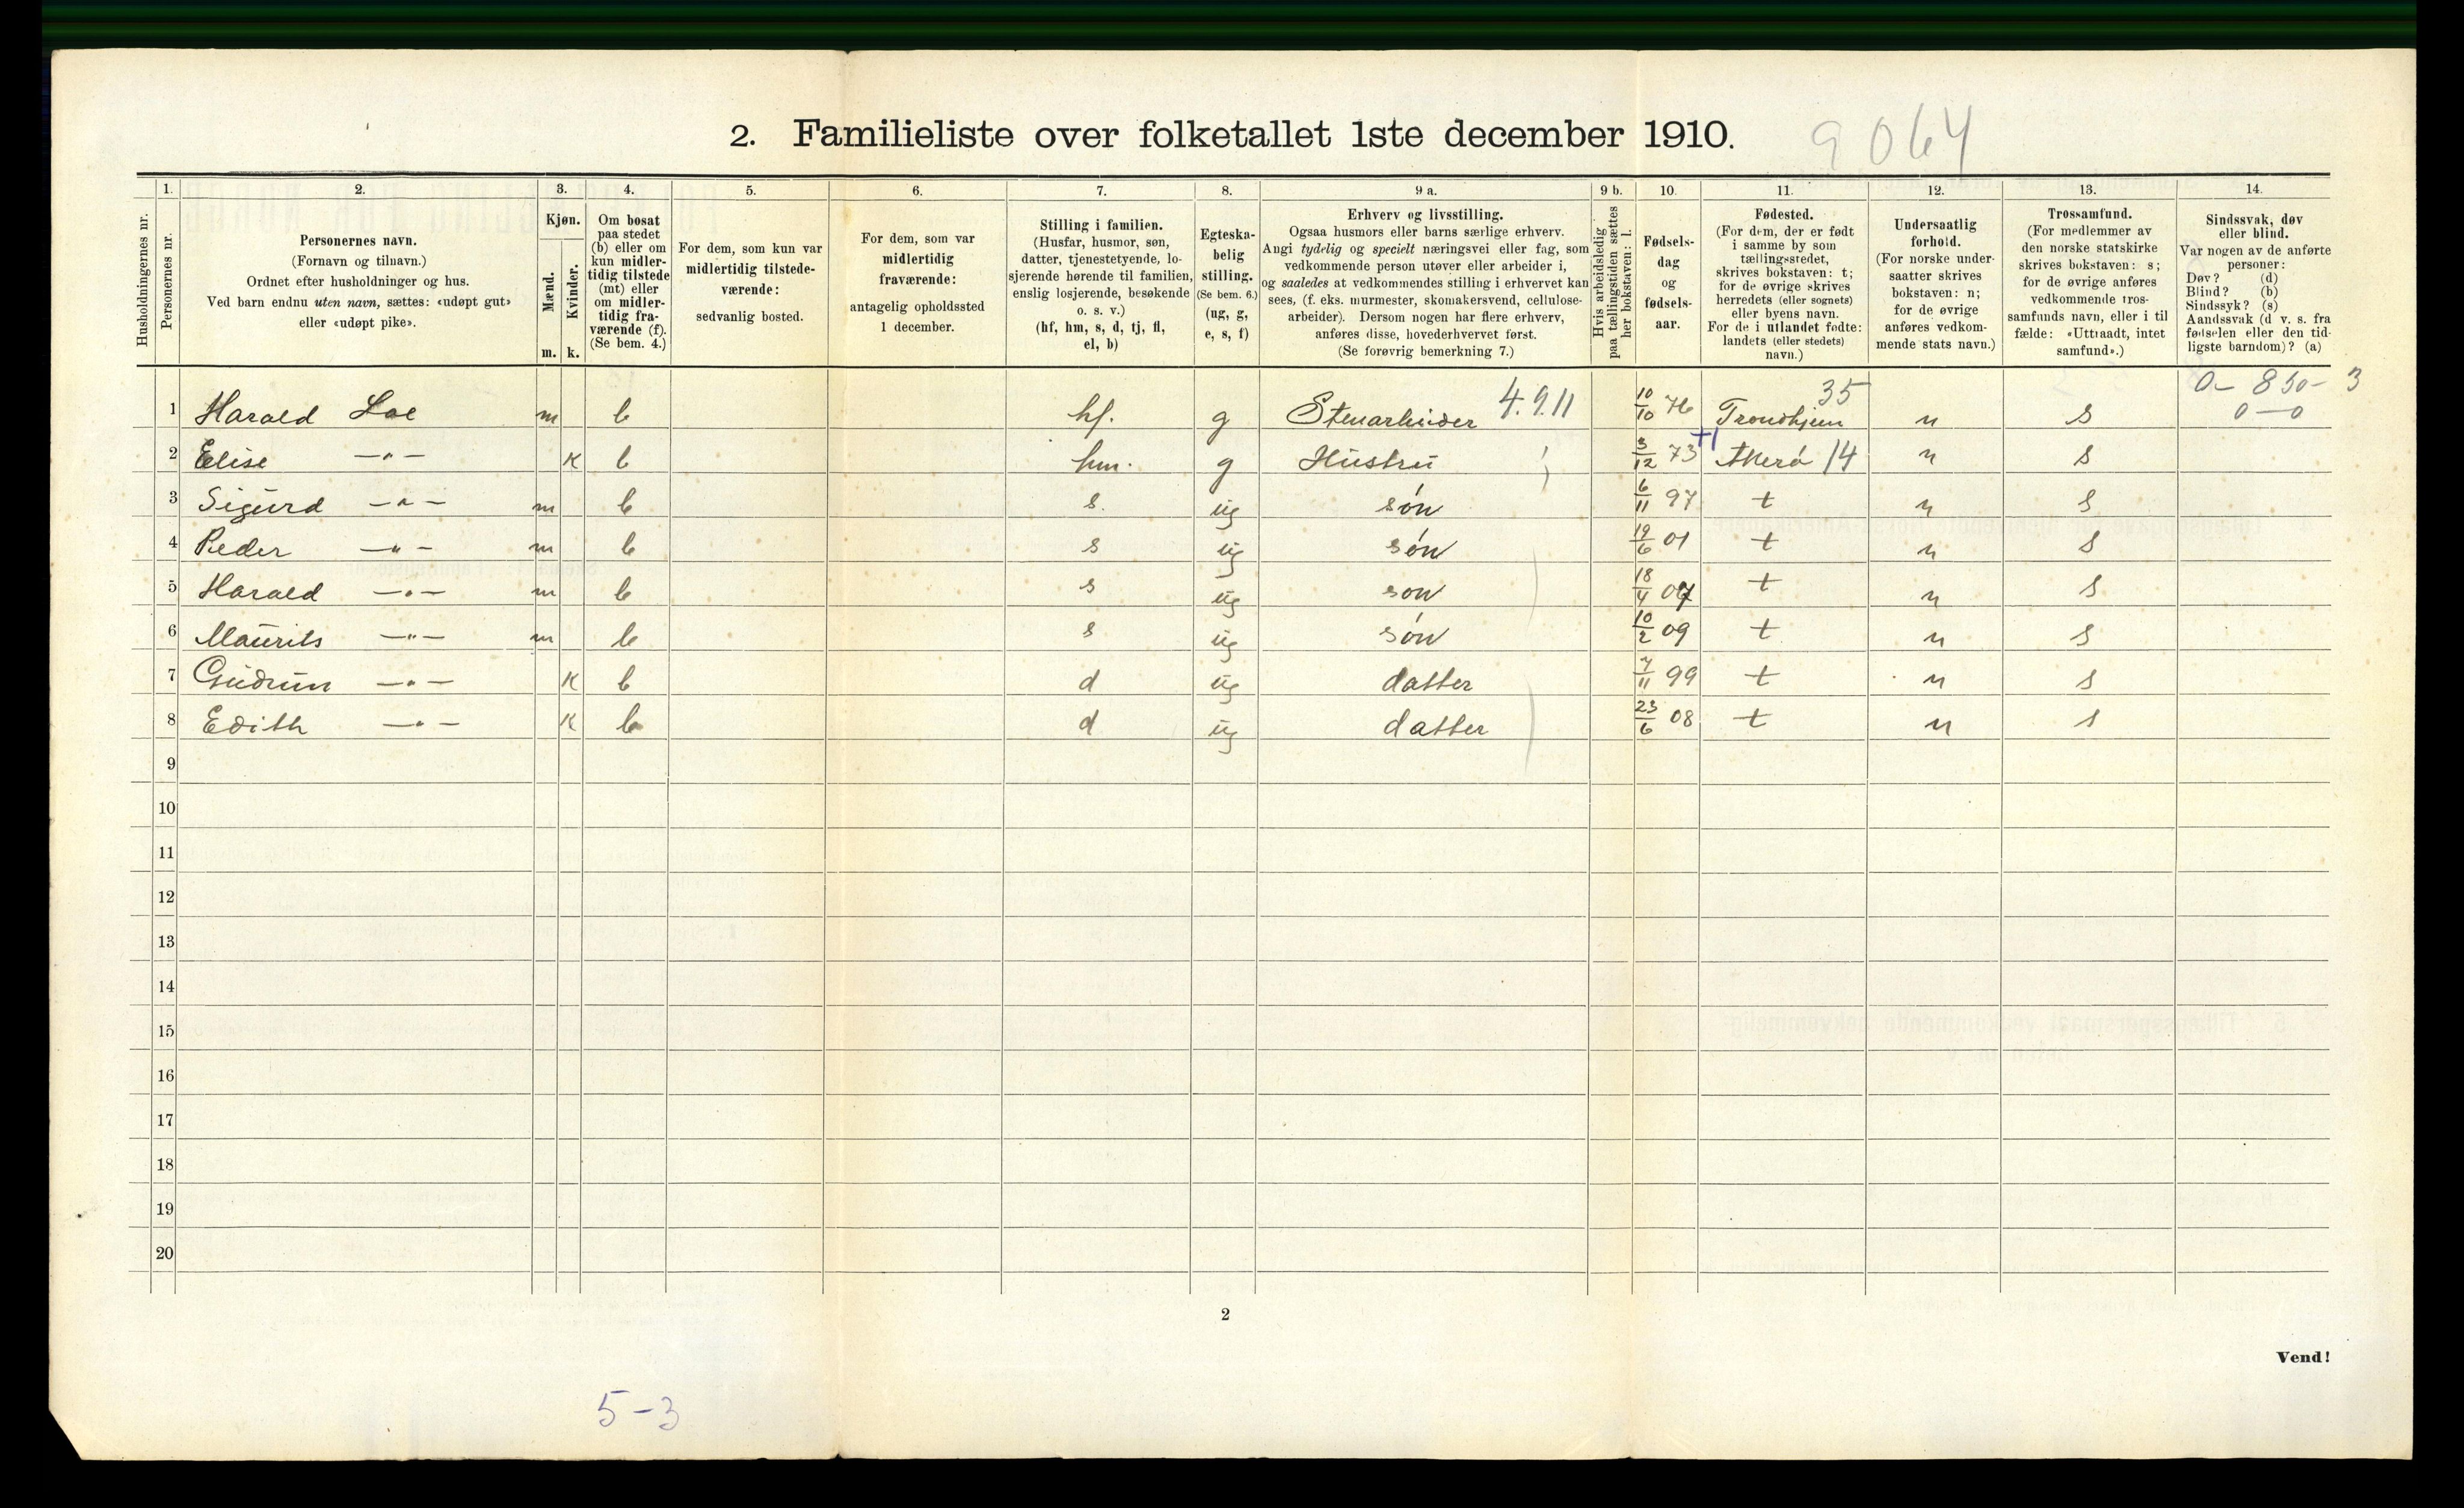 2. Familieliste over folketallet 1ste december 1910.
9064
Husholdningernes nr.
1.
Personernes nr.
2.
Personernes navn.
(Fornavn og tilnavn.)
Ordnet efter husholdninger og hus.
Ved barn endnu uten navn, sættes: «udøpt gut»
eller «udøpt pike».
3.
Kjøn.
Mænd.
Kvinder.
m. k.
4.
Om bosat
paa stedet
(b) eller om
kun midler-
tidig tilstede
(mt) eller
om midler-
tidig fra-
værende (f).
(Se bem. 4.)
5.
For dem, som kun var
midlertidig tilstede-
værende:
sedvanlig bosted.
6.
For dem, som var
midlertidig
fraværende:
antagelig opholdssted
1 december.
7.
Stilling i familien.
(Husfar, husmor, søn,
datter, tjenestetyende, lo-
sjerende hørende til familien,
enslig losjerende, besøkende
o. s. v.)
(hf, hm, s, d, tj, fl,
el, b)
8.
Egteska-
belig
stilling.
(Se bem. 6.)
(ug, g,
e, s, f)
9 a.
Erhverv og livsstilling.
Ogsaa husmors eller barns særlige erhverv.
Angi tydelig og specielt næringsvei eller fag, som
vedkommende person utøver eller arbeider i,
og saaledes at vedkommendes stilling i erhvervet kan
sees, (f. eks. murmester, skomakersvend, cellulose-
arbeider). Dersom nogen har flere erhverv,
anføres disse, hovederhvervet først.
(Se forøvrig bemerkning 7.)
9 b.
Hvis arbeidsledig
paa tællingstiden sættes
her bokstaven: l.
10.
Fødsels-
dag
og
fødsels-
aar.
11.
Fødested.
(For dem, der er født
i samme by som
tællingsstedet,
skrives bokstaven: t;
for de øvrige skrives
herredets (eller sognets)
eller byens navn.
For de i utlandet fødte:
landets (eller stedets)
navn.)
12.
Undersaatlig
forhold.
(For norske under-
saatter skrives
bokstaven: n;
for de øvrige
anføres vedkom-
mende stats navn.)
13.
Trossamfund.
(For medlemmer av
den norske statskirke
skrives bokstaven: s;
for de øvrige anføres
vedkommende tros-
samfunds navn, eller i til
fælde: «Uttraadt, intet
samfund».)
14.
Sindssvak, døv
eller blind.
Var nogen av de anførte
personer:
Døv? (d)
Blind? (b)
Sindssyk? (s)
Aandssvak (d v. s. fra
fødselen eller den tid-
ligste barndom)? (a)
35 0- 850- 3
1 Harald Loe m b hf. g Stenarbeider 4.9.11 10/10 76 Trondhjem n s 0-0
2 Elise —"— K b hm. g Hustru 3/12 73 +1 Akerø 14 n s
3 Sigurd —"— m b s. ug søn 6/11 97 t n s
4 Peder —"— m b s ug søn 19/6 01 t n s
5 Harald —"— m b s ug søn 18/4 07 t n s
6 Maurits —"— m b s ug søn 10/2 09 t n s
7 Gudrun —"— K b d ug datter 7/11 99 t n s
8 Edith —"— K b d ug datter 23/6 08 t n s
9
10
11
12
13
14
15
16
17
18
19
20
2
Vend!
5-3